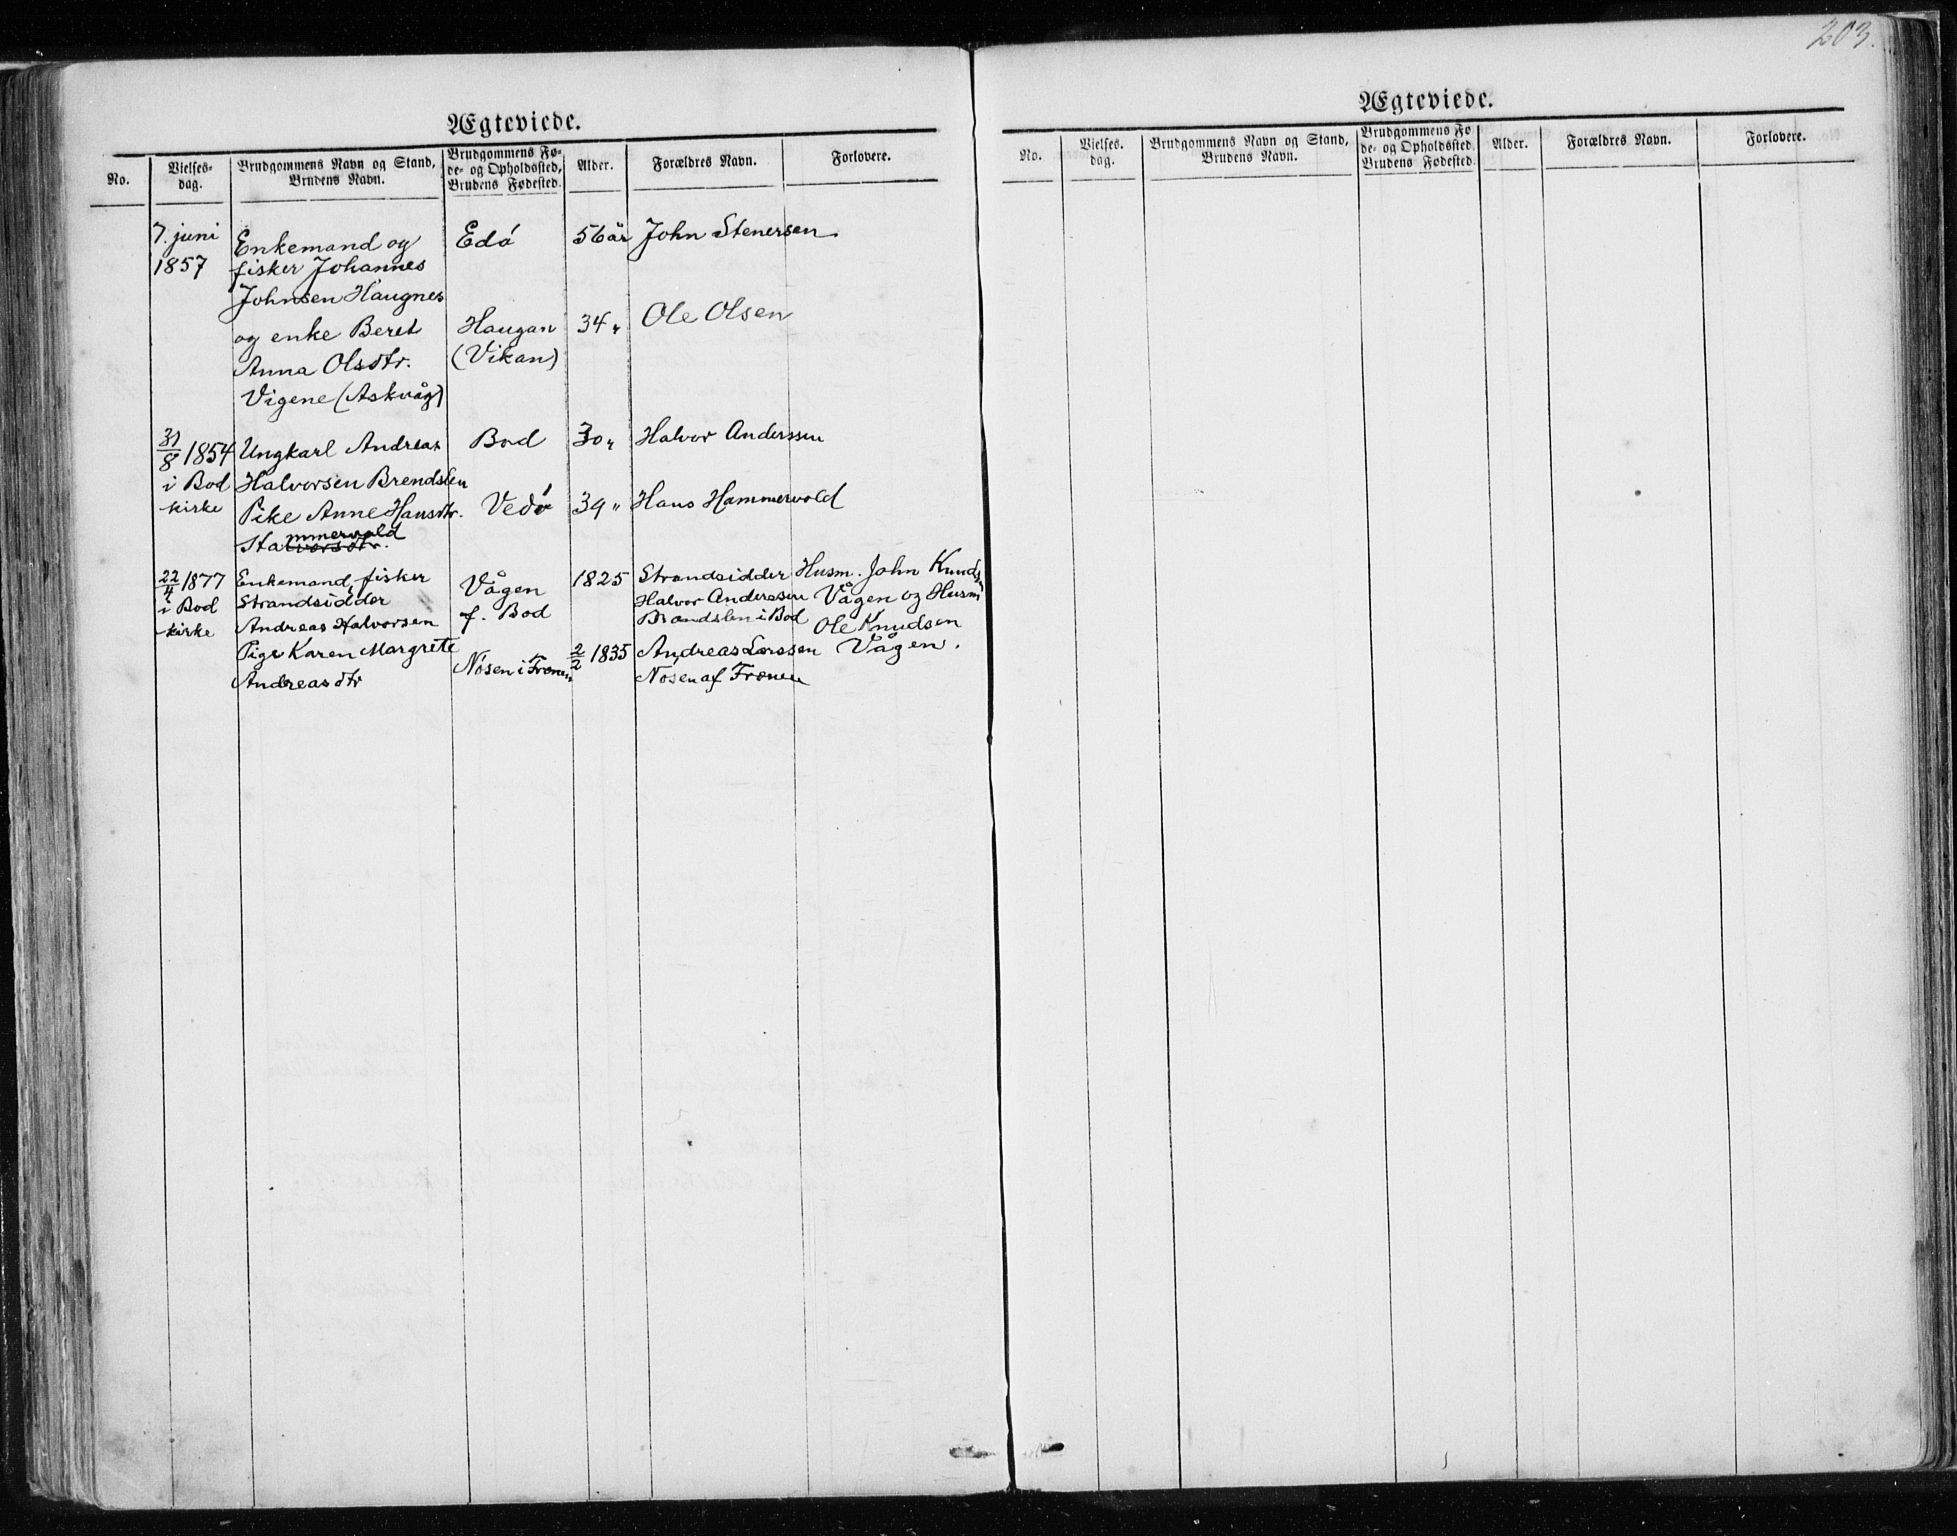 203.
Ægteviede.
No.
Vielses-
dag.
Brudgommens Navn og Stand,
Brudens Navn.
Brudgommens Fø-
de- og Opholdssted,
Brudens Fødested.
Alder.
Forældres Navn.
Forlovere.
7. juni
1857
Enkemand og
fisker Johannes
Johnsen Haugnes
og enke Beret
Anna Olsdtr.
Vigene (Askvåg)
Edø
Haugan
(Vikan)
56 år
34 "
John Stenersen
Ole Olsen
31/8 1854
i Bod
kirke
Ungkarl Andreas
Halvorsen Brendslen
Pike Anne Hansdtr.
mmervold
Halvorsdtr.
Bod
Vedø
30 "
39 "
Halvor Anderssen
Hans Hammervold
22/4 1877
i Bod
kirke
Enkemand, fisker
Strandsidder
Andreas Halvorsen
Pige Karen Margrete
Andreasdtr
Vågen
f. Bod
Nøsen i Frænen
1825
2/2 1835
Strandsidder
Halvor Anderssen
Brandslen i Bod
Andreas Larssen
Nøsen af Frænen
Husm. John Knudsen
Vågen og Husm
Ole Knudsen
Vågen.
Ægteviede.
No.
Vielses.
dag.
Brudgommens Navn og Stand,
Brudens Navn.
Brudgommens Fø
de- og Opholdssted
Brudens Fødested.
Alder.
Forældres Navn.
Forlovere.